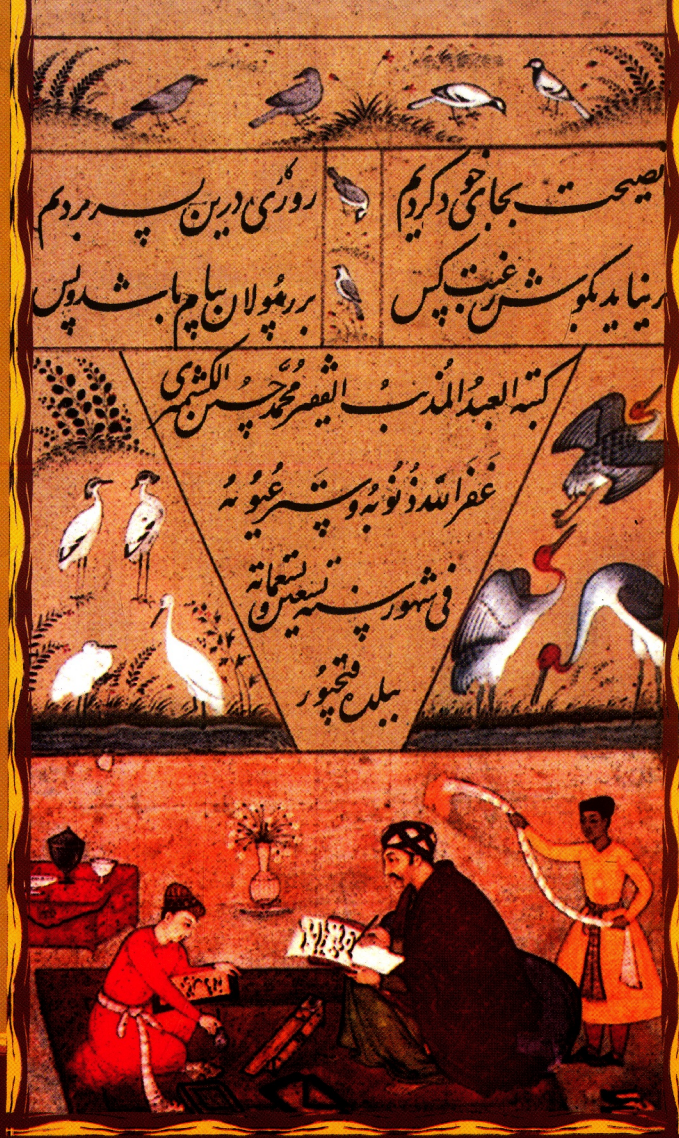 نصیحت بجای خود کردیم روزکاری درین بسر بردیم
نیاید بکوش رغبت کس بر رسولان پیام باشد و بس
کتبه العبدُ المُذنبُ الفقیر مُحمَّد حسین الکشمیری
غَفَرَ اللهُ ذُنُوبُهُ و سَتَرَ عُیُوبهُ
فی شهور سنه تسعین و تسعمائه
ببلده فتحپور